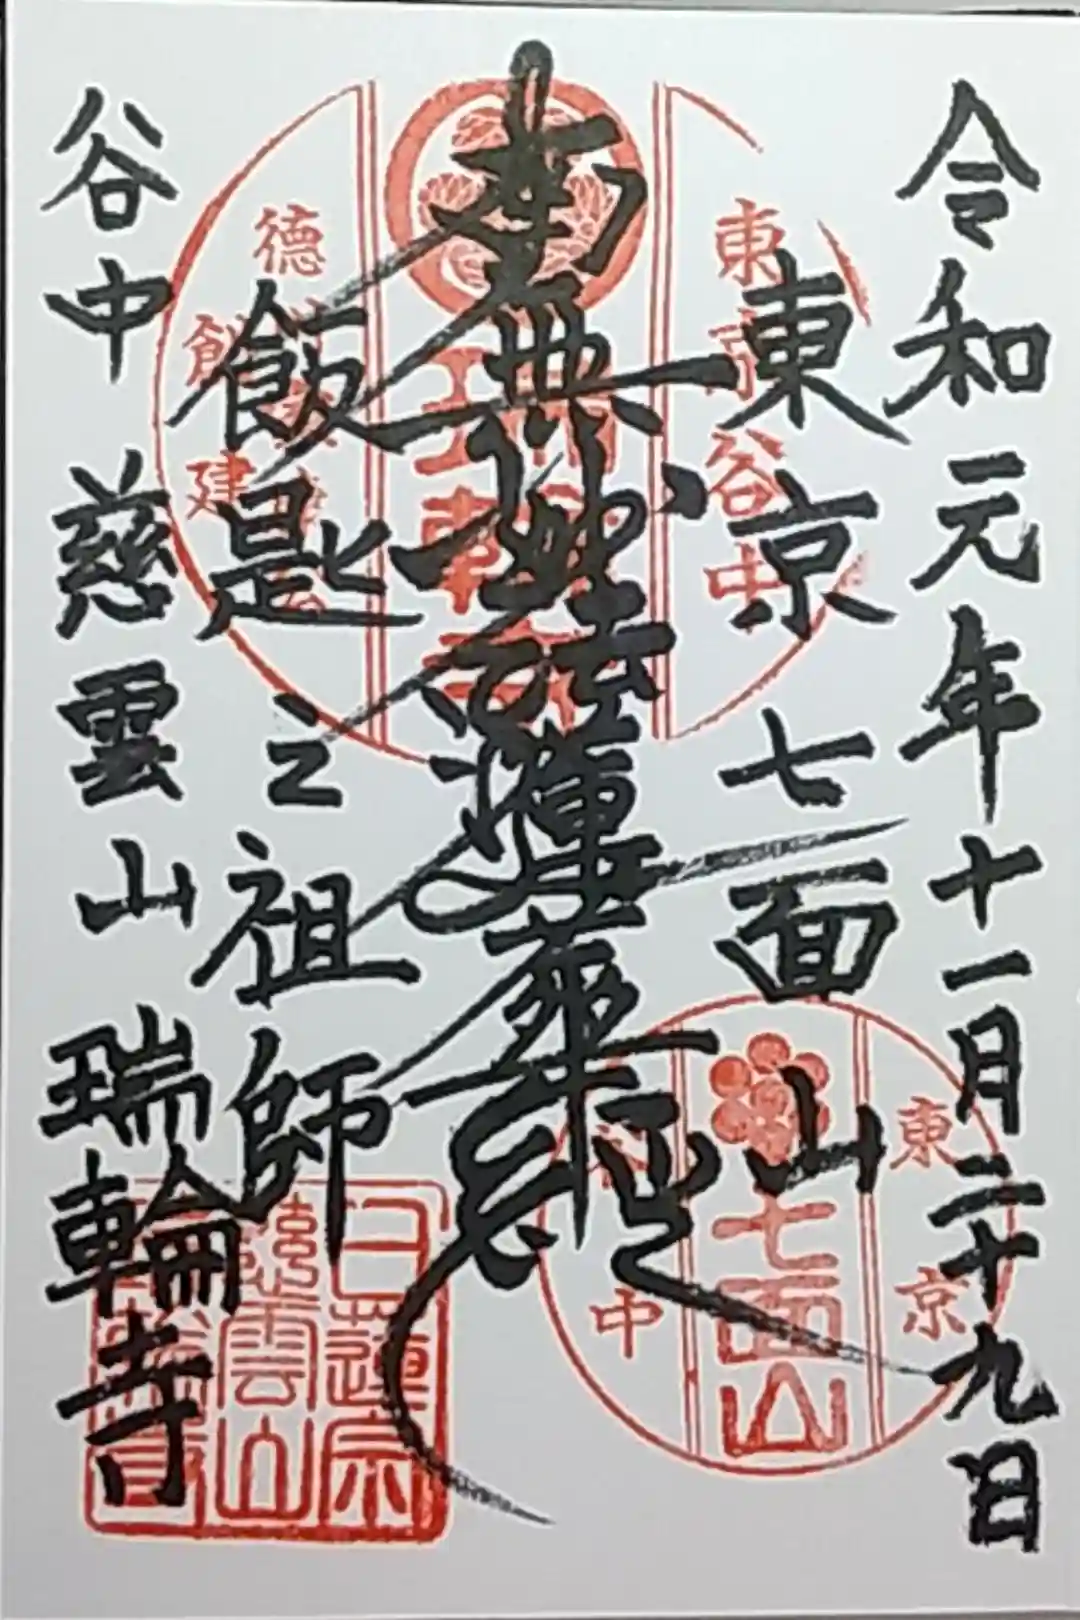 令和元年十一月二十九日
東京七面山
南無妙法蓮華経
飯匙之祖師
谷中 慈雲山 瑞輪寺
東京
谷中
七面山
日蓮宗
慈雲山